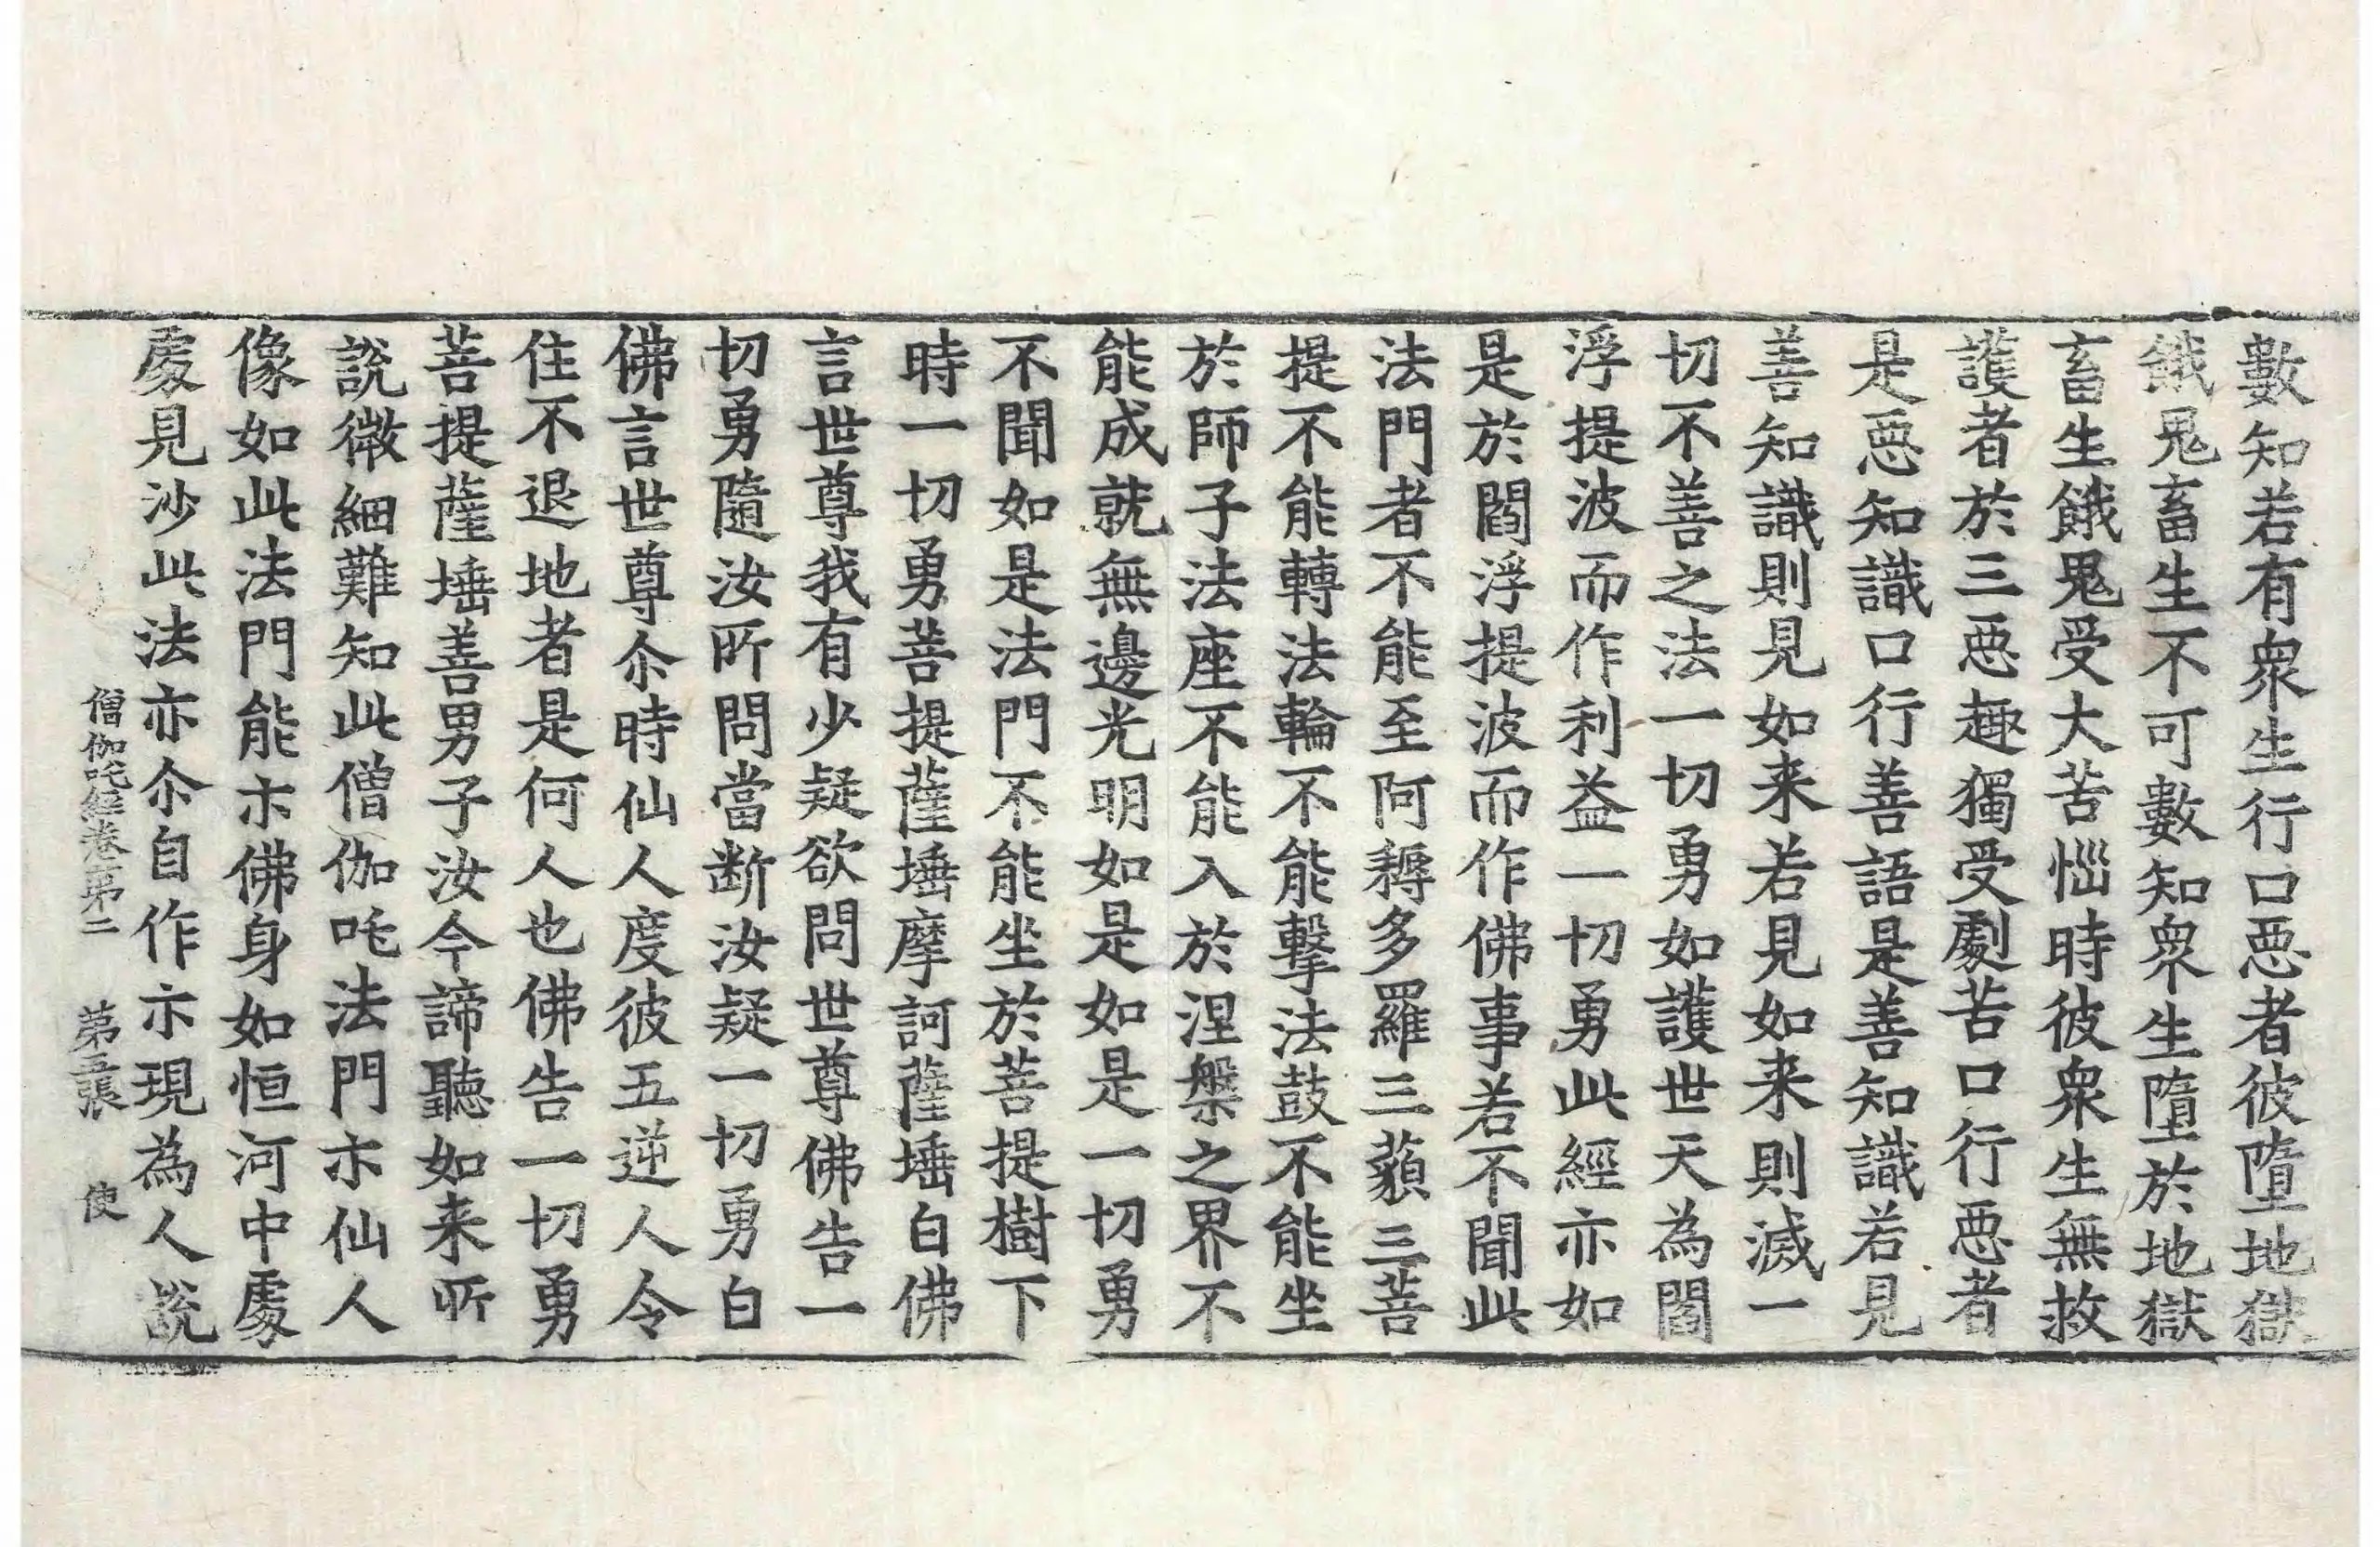 數知若有衆生行口惡者彼墮地獄
餓鬼畜生不可數知衆生墮於地獄
畜生餓鬼受大苦惱時彼衆生無救
護者於三惡趣獨受劇苦口行惡者
是惡知識口行善語是善知識若見
善知識則見如来若見如来則滅一
切不善之法一切勇如護世天為閻
浮提波而作利益一切勇此經亦如
是於閻浮提波而作佛事若不聞此
法門者不能至阿耨多羅三藐三菩
提不能轉法輪不能擊法鼓不能坐
於師子法座不能入於涅槃之界不
能成就無邊光明如是如是一切勇
不聞如是法門不能坐於菩提樹下
時一切勇菩提薩埵摩訶薩埵白佛
言世尊我有少疑欲問世尊佛告一
切勇隨汝所問當断汝疑一切勇白
佛言世尊尒時仙人度彼五逆人令
住不退地者是何人也佛告一切勇
菩提薩埵善男子汝今諦聽如来所
說微細難知此僧伽吒法門示仙人
像如此法門能示佛身如恒河中處
處見沙此法亦尒自作示現為人說
僧伽吒經卷第二 第五張 使